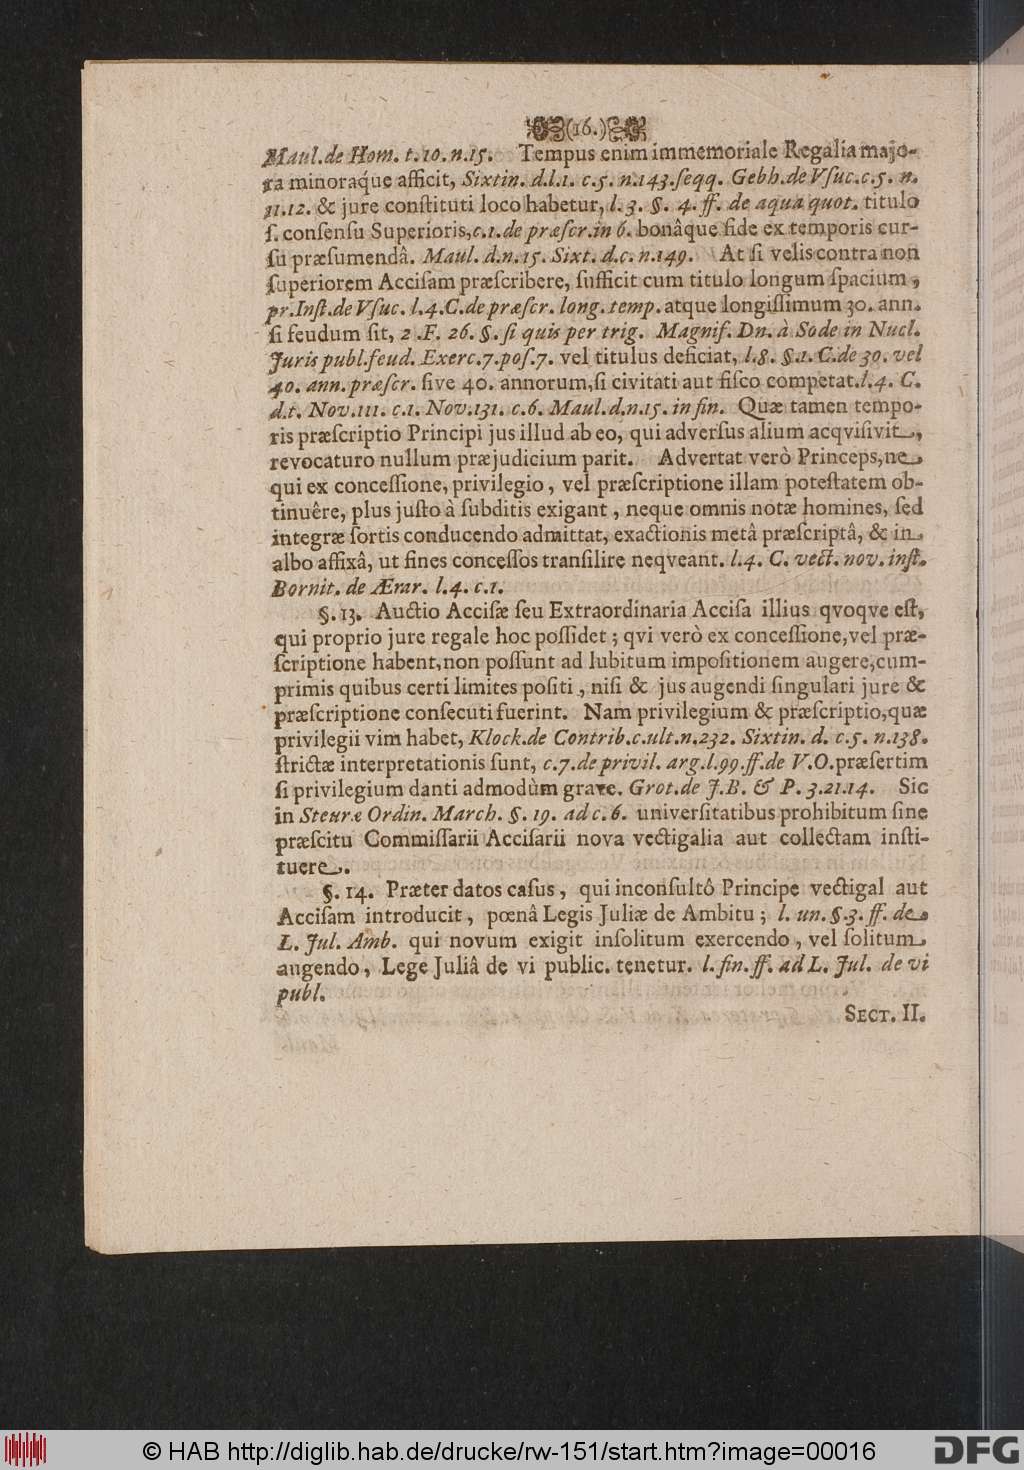 (16.)
Maul. de Hom. t. 10. n. 15. Tempus enim immemoriale Regalia majo-
ra minoraq́ue afficit, Sixtin. d. l. 1. c. 5. n. 143. ſeqq. Gebh. de Vſuc. c. 5. n.
11. 12. & jure conſtituti loco habetur, l. 3. §. 4. ff. de aqua quot. titulo
ſ. conſenſu Superioris, c. 1. de præſcr. in 6. bonâque fide ex temporis cur-
ſu præſumendâ. Maul. d. n. 15. Sixt. d. c. n. 149. At ſi velis contra non
ſuperiorem Acciſam præſcribere, ſufficit cum titulo longum ſpacium,
pr. Inſt. de Vſuc. l. 4. C. de præſcr. long. temp. atque longiſſimum 30. ann.
ſi feudum ſit, 2. F. 26. §. ſi quis per trig. Magnif. Dn. à Sode in Nucl.
Juris publ. feud. Exerc. 7. poſ. 7. vel titulus deficiat, l. 8. §. 1. C. de 30. vel
40. ann. præſcr. ſive 40. annorum, ſi civitati aut fiſco competat. l. 4. C.
d. t. Nov. 111. c. 1. Nov. 131. c. 6. Maul. d. n. 15. in fin. Quæ tamen tempo-
ris præſcriptio Principi jus illud ab eo, qui adverſus alium acqviſivit,
revocaturo nullum præjudicium parit. Advertat verò Princeps, ne
qui ex conceſſione, privilegio, vel præſcriptione illam poteſtatem ob-
tinuêre, plus juſto à ſubditis exigant, neque omnis notæ homines, ſed
integræ ſortis conducendo admittat, exactionis metâ præſcriptâ, & in
albo affixâ, ut fines conceſſos tranſilire neqveant. l. 4. C. vect. nov. inſt.
Bornit. de Ærar. l. 4. c. 1.
§. 13. Auctio Acciſæ ſeu Extraordinaria Acciſa illius qvoqve eſt,
qui proprio jure regale hoc poſſidet; qvi verò ex conceſſione, vel præ-
ſcriptione habent, non poſſunt ad lubitum impoſitionem augere, cum-
primis quibus certi limites poſiti, niſi & jus augendi ſingulari jure &
præſcriptione conſecuti fuerint. Nam privilegium & præſcriptio, quæ
privilegii vim habet, Klock. de Contrib. c. ult. n. 232. Sixtin. d. c. 5. n. 138.
ſtrictæ interpretationis ſunt, c. 7. de privil. arg. l. 99. ff. de V. O. præſertim
ſi privilegium danti admodùm grave. Grot. de J. B. & P. 3. 21. 14. Sic
in Steuræ Ordin. March. §. 19. ad c. 6. univerſitatibus prohibitum ſine
præſcitu Commiſſarii Acciſarii nova vectigalia aut collectam inſti-
tuere.
§. 14. Præter datos caſus, qui inconſultô Principe vectigal aut
Acciſam introducit, pœnâ Legis Juliæ de Ambitu; l. un. §. 3. ff. de
L. Jul. Amb. qui novum exigit inſolitum exercendo, vel ſolitum
augendo, Lege Juliâ de vi public. tenetur. l. fin. ff. ad L. Jul. de vi
publ.
SECT. II.
© HAB http://diglib.hab.de/drucke/rw-151/start.htm?image=00016
DFG